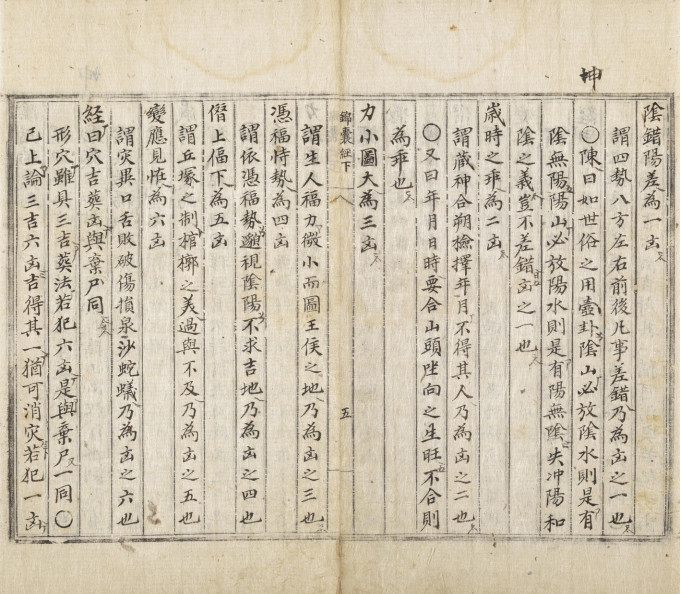 坤
陰錯陽差為一㐫
謂四勢八方左右前後凡事差錯乃為㐫之一也
〇陳曰如世俗之用臺卦陰山必放陰水則是有
陰無陽陽山必放陽水則是有陽無陰失冲陽和
陰之義豈不差錯㐫之一也
歲時之乖為二㐫
謂歲神合朔撿擇年月不得其人乃為㐫之二也
〇又曰年月日時要合山頭坐向之生旺不合則
為乖也
力小圖大為三㐫
錦囊経下
五
謂生人福力微小而圖王侯之地乃為㐫之三也
憑福恃勢為四㐫
謂依憑福勢邈視蔭陽不求吉地乃為㐫之四也
僭上偪下為五㐫
謂丘塚之制棺槨之美過與不及乃為㐫之五也
變應見恠為六㐫
謂灾異口舌敗破傷損泉沙蛇蟻乃為㐫之六也
経曰穴吉葬㐫與棄尸同
形穴雖具三吉葬法若犯六㐫是與棄尸一同〇
已上論三吉六㐫吉得其一猶可消灾若犯一㐫